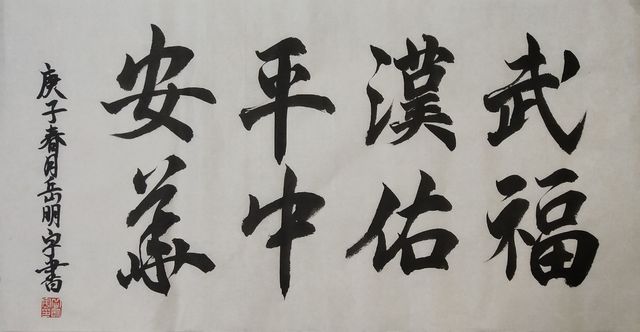 武漢平安
福佑中華
庚子春月岳明宇書